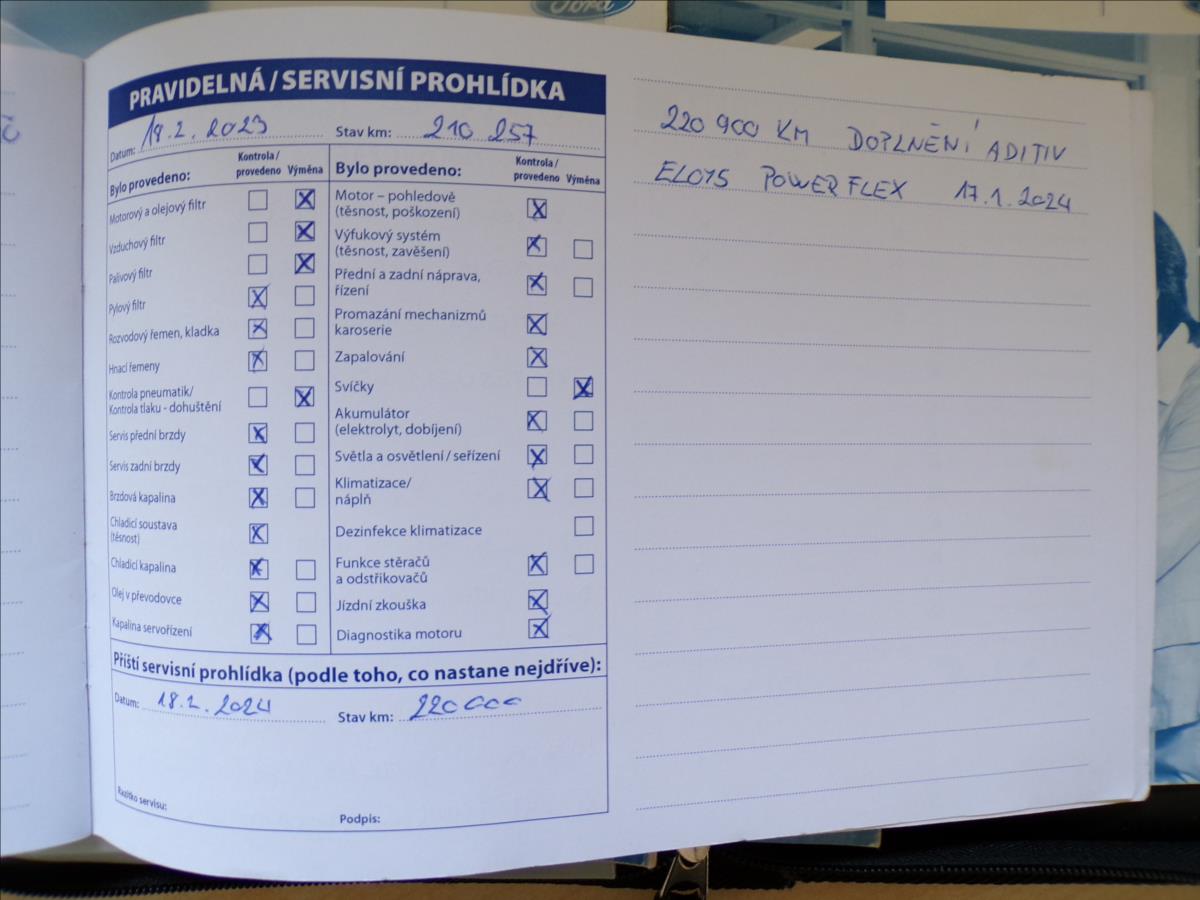 Ford
PRAVIDELNÁ / SERVISNÍ PROHLÍDKA
Datum: 18.2.2023 Stav km: 210 257
Bylo provedeno: Kontrola / provedeno Výměna
Motorový a olejový filtr
Vzduchový filtr
Palivový filtr
Pylový filtr
Rozvodový řemen, kladka
Hnací řemeny
Kontrola pneumatik/
Kontrola tlaku - dohuštění
Servis přední brzdy
Servis zadní brzdy
Brzdová kapalina
Chladicí soustava
(těsnost)
Chladicí kapalina
Olej v převodovce
Kapalina servořízení
Bylo provedeno: Kontrola / provedeno Výměna
Motor – pohledově
(těsnost, poškození)
Výfukový systém
(těsnost, zavěšení)
Přední a zadní náprava,
řízení
Promazání mechanizmů
karoserie
Zapalování
Svíčky
Akumulátor
(elektrolyt, dobíjení)
Světla a osvětlení / seřízení
Klimatizace/
náplň
Dezinfekce klimatizace
Funkce stěračů
a odstřikovačů
Jízdní zkouška
Diagnostika motoru
Příští servisní prohlídka (podle toho, co nastane nejdříve):
Datum: 18.2.2024 Stav km: 220000
Razítko servisu:
Podpis:
220 900 KM DOPLNĚNÍ ADITIV
ELO15 POWER FLEX 17.1.2024